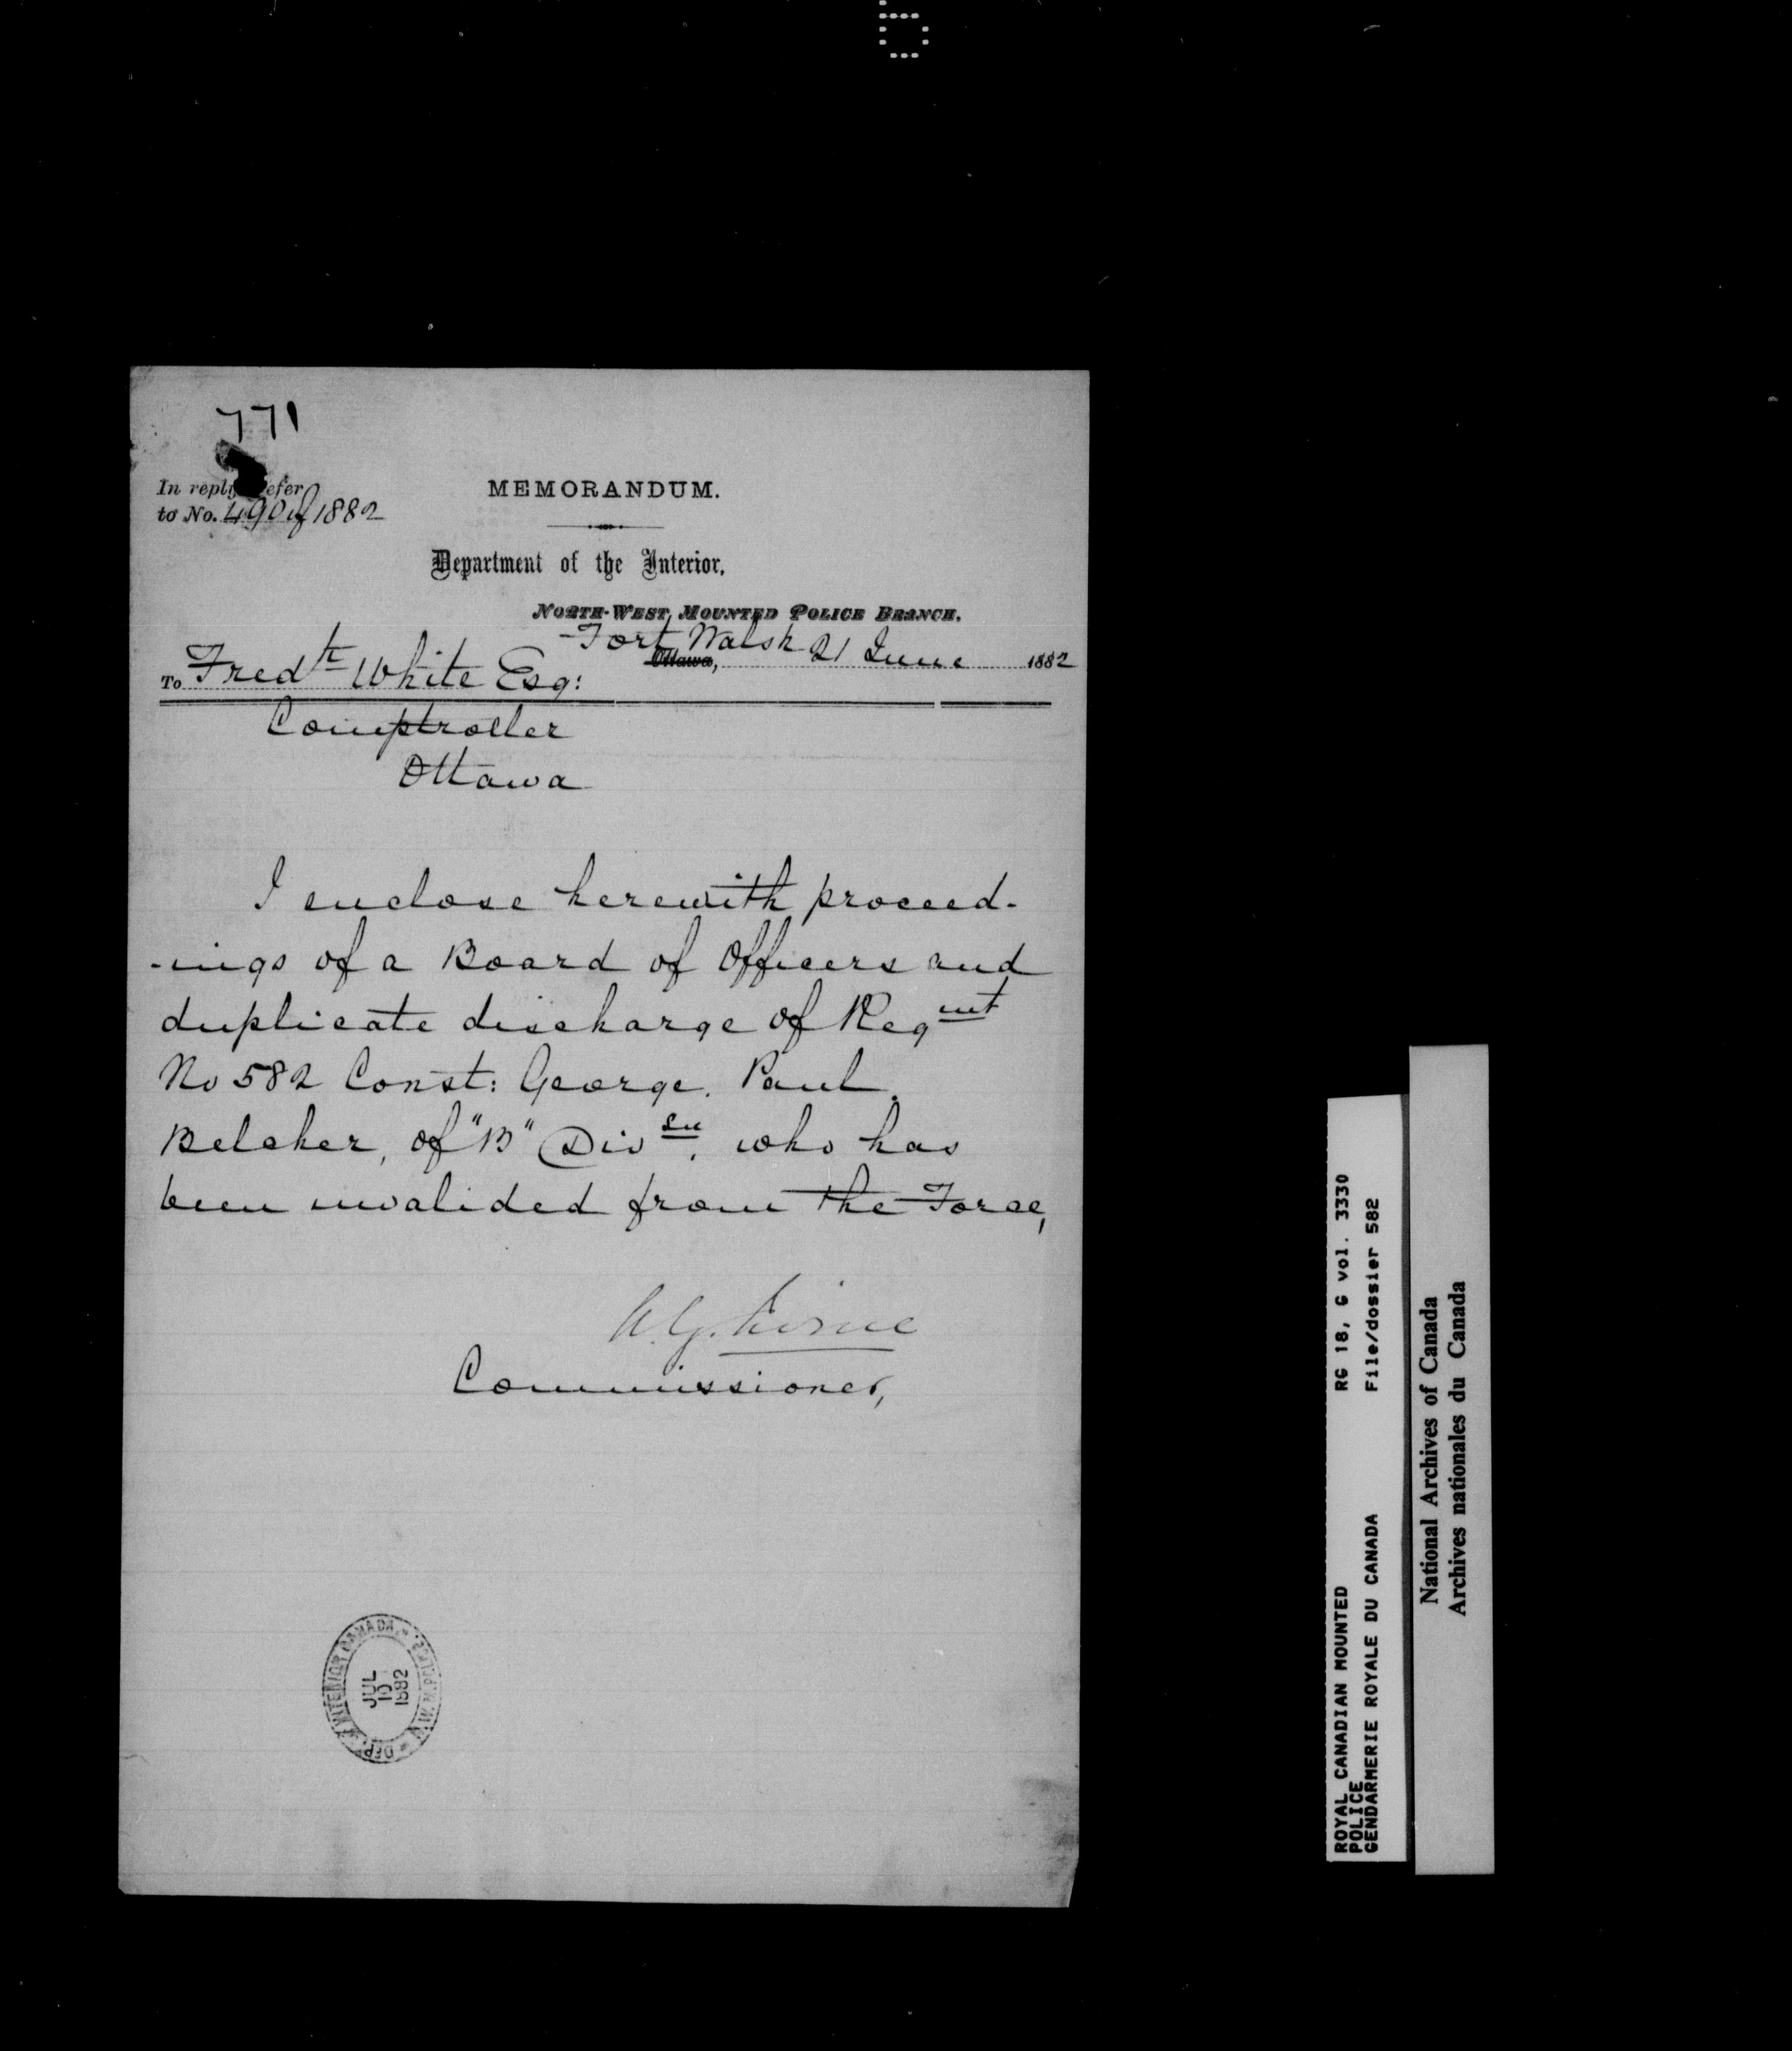 771
In reply refer
to No. 490 of 1882
MEMORANDUM.
Department of the Interior,
NORTH-WEST MOUNTED POLICE BRANCH.
Fort Walsh 21 June 1882
Ottawa,
To Fredk White Esq:
Comptroller
Ottawa
I enclose herewith proceed-
-ings of a Board of Officers and
duplicate discharge of Regmt
No 582 Const: George. Paul.
Belcher, of "B" Divsn. who has
been invalided from the Force,
A.G. Irvine
Commissioner,
DEPT INTERIOR CANADA - N.W.M. POLICE -
JUL
10
1882
ROYAL CANADIAN MOUNTED
POLICE
GENDARMERIE ROYALE DU CANADA
RG 18, G vol. 3330
File/dossier 582
National Archives of Canada
Archives nationales du Canada